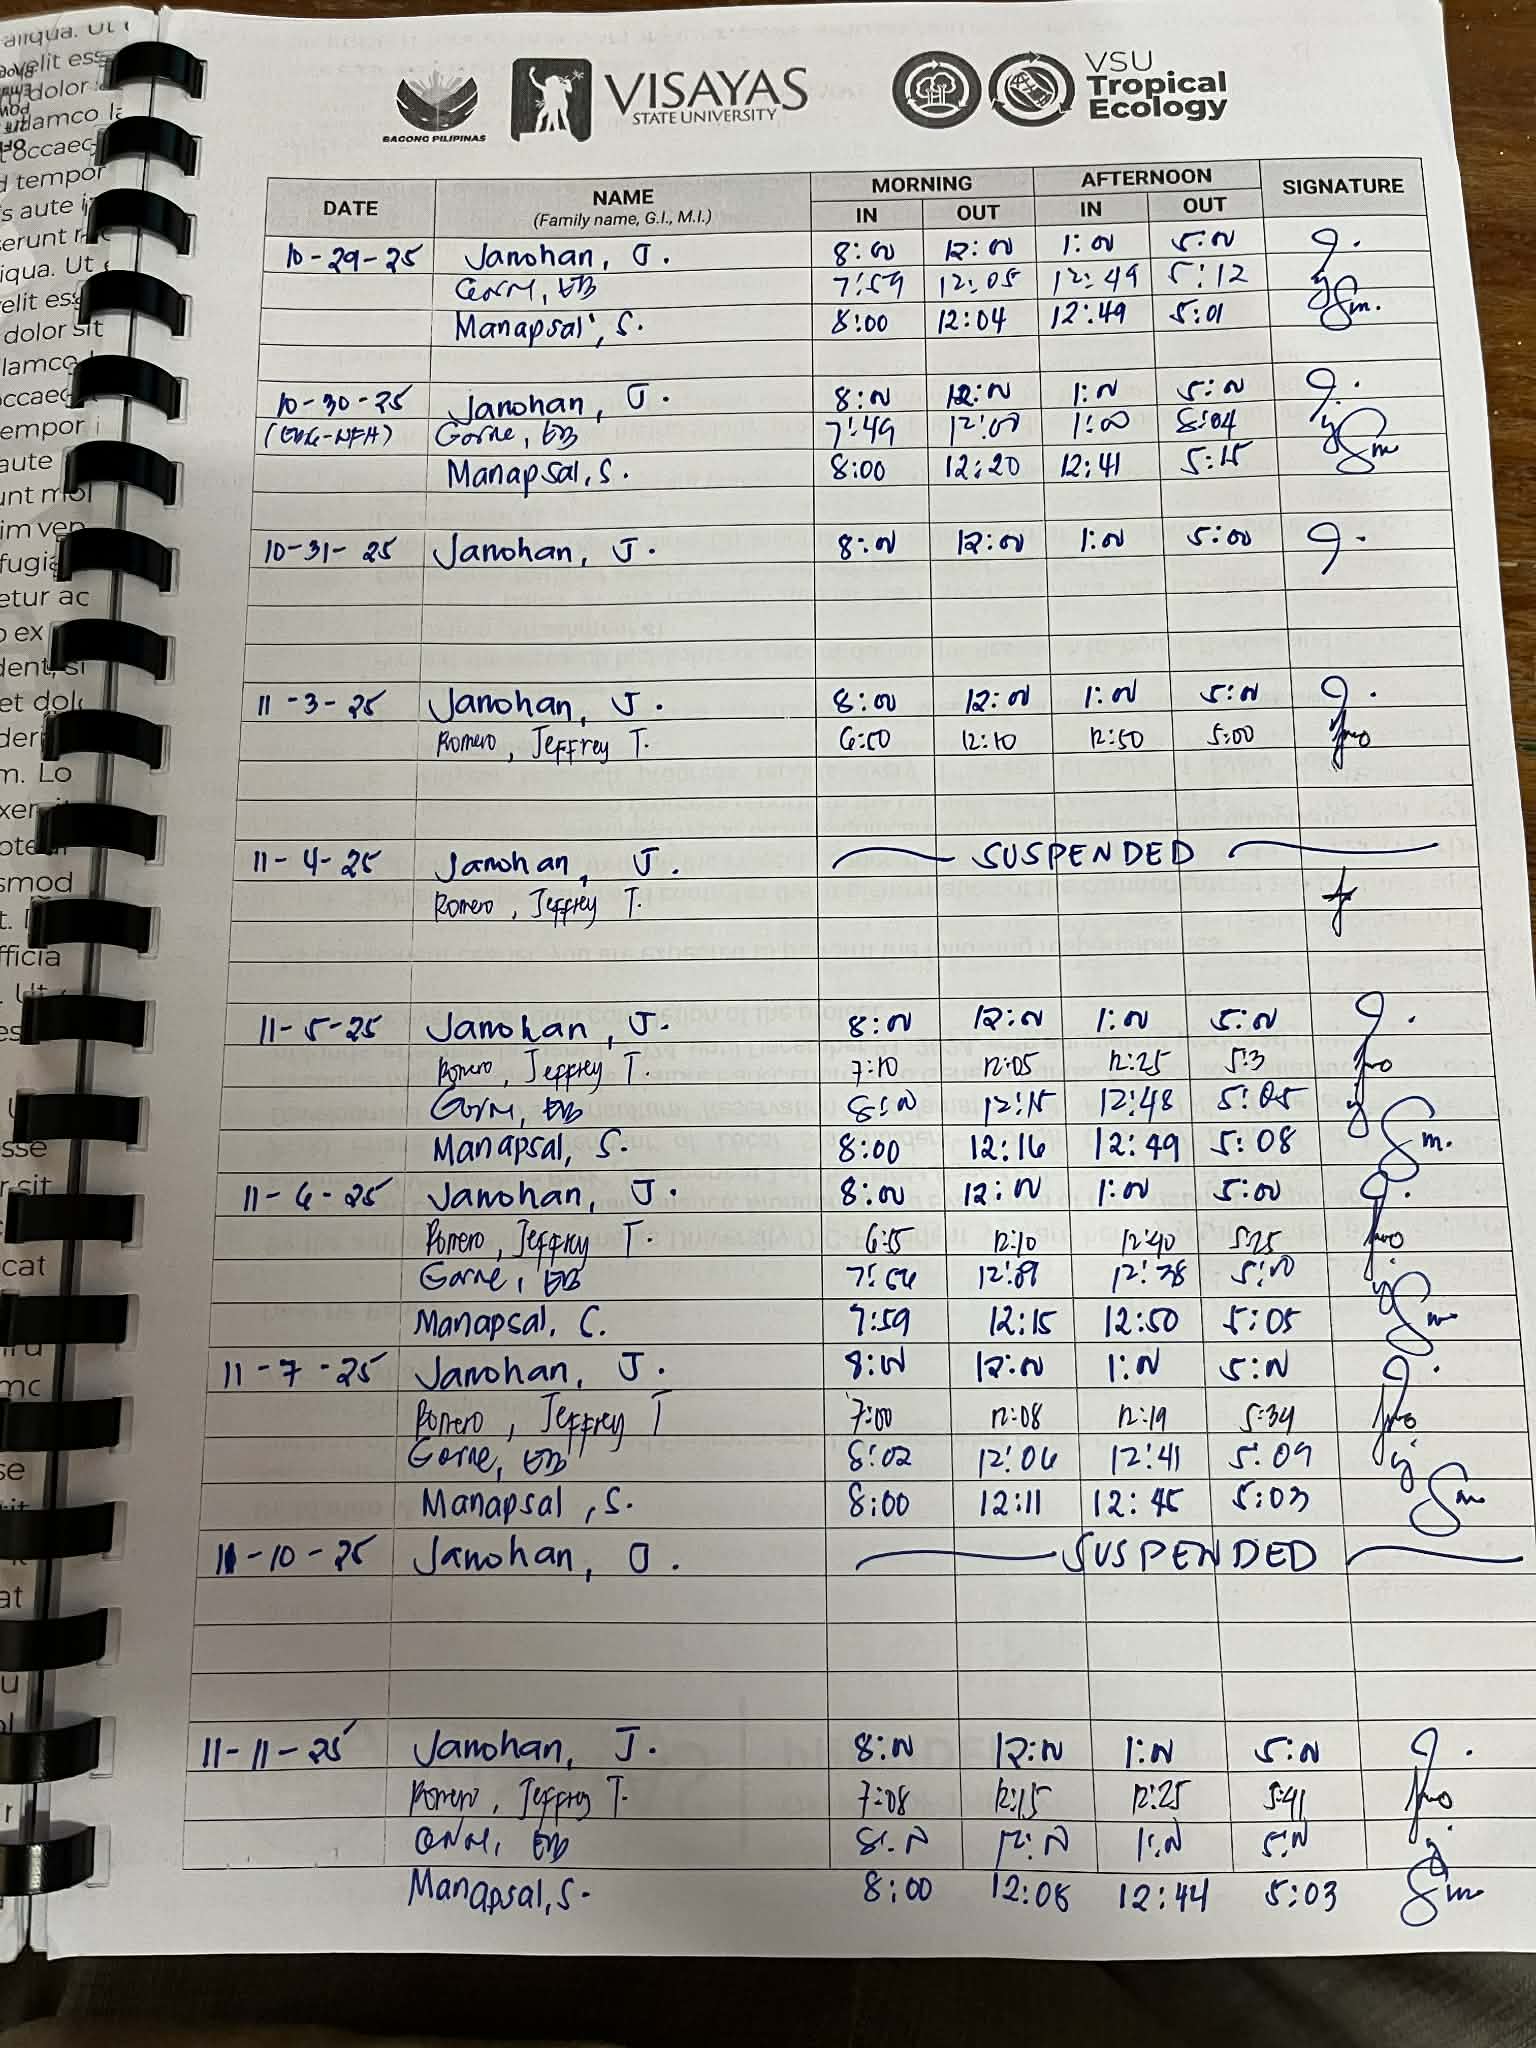 BAGONG PILIPINAS
VISAYAS
STATE UNIVERSITY
VSU
Tropical
Ecology
DATE NAME (Family name, G.I., M.I.) MORNING IN OUT AFTERNOON IN OUT SIGNATURE
10-29-25 Janohan, J. 8:00 12:00 1:00 5:00
Gorne, EB 7:59 12:05 12:49 5:12
Manapsal, S. 8:00 12:04 12:49 5:01 Sm.
10-30-25 Janohan, J. 8:00 12:00 1:00 5:00
Gorne, EB 7:49 12:00 1:00 5:04
Manapsal, S. 8:00 12:20 12:41 5:15 Sm
10-31-25 Janohan, J. 8:00 12:00 1:00 5:00
11-3-25 Janohan, J. 8:00 12:00 1:00 5:00
Romero, Jeffrey T. 6:50 12:10 12:50 5:00
11-4-25 Janohan, J. SUSPENDED
Romero, Jeffrey T.
11-5-25 Janohan, J. 8:00 12:00 1:00 5:00
Romero, Jeffrey T. 7:10 12:05 12:25 5:3
Gorne, EB 8:00 12:15 12:48 5:05
Manapsal, S. 8:00 12:16 12:49 5:08 Sm.
11-6-25 Janohan, J. 8:00 12:00 1:00 5:00
Romero, Jeffrey T. 6:55 12:10 12:40 5:25
Gorne, EB 7:56 12:38 5:00
Manapsal, S. 7:59 12:15 12:50 5:05 Sm
11-7-25 Janohan, J. 8:00 12:00 1:00 5:00
Romero, Jeffrey T 7:00 12:08 12:19 5:34
Gorne, EB 8:02 12:06 12:41 5:09
Manapsal, S. 8:00 12:11 12:45 5:03 Sm
11-10-25 Janohan, J. SUSPENDED
11-11-25 Janohan, J. 8:00 12:00 1:00 5:00
Romero, Jeffrey T. 7:08 12:15 12:25 5:41
Gorne, EB 8:00 12:00 1:00 5:00
Manapsal, S. 8:00 12:08 12:44 5:03 Sm